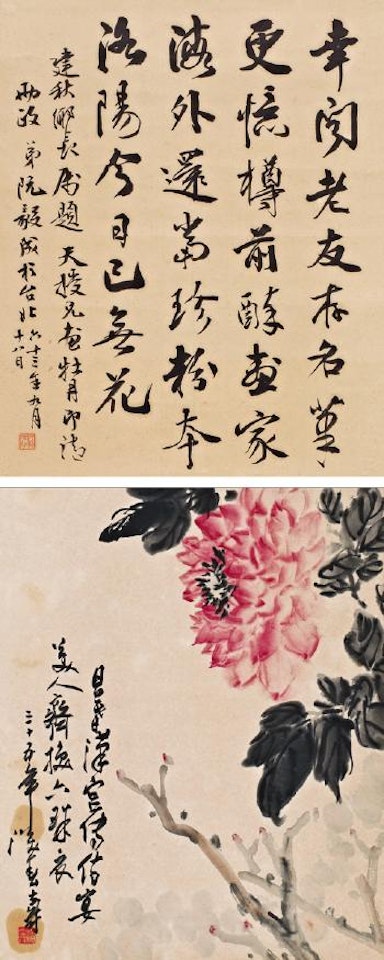 幸 老友存名
更憶樽前醉畫家
海外還當珍粉本
洛陽今日已無花
建秋鄉長屬題 天授兄畫牡丹即請
兩政 弟阮毅成於台北 六十三年九月
十八日
日暮漢宮傳侍宴
美人齊換六銖衣
三十五年